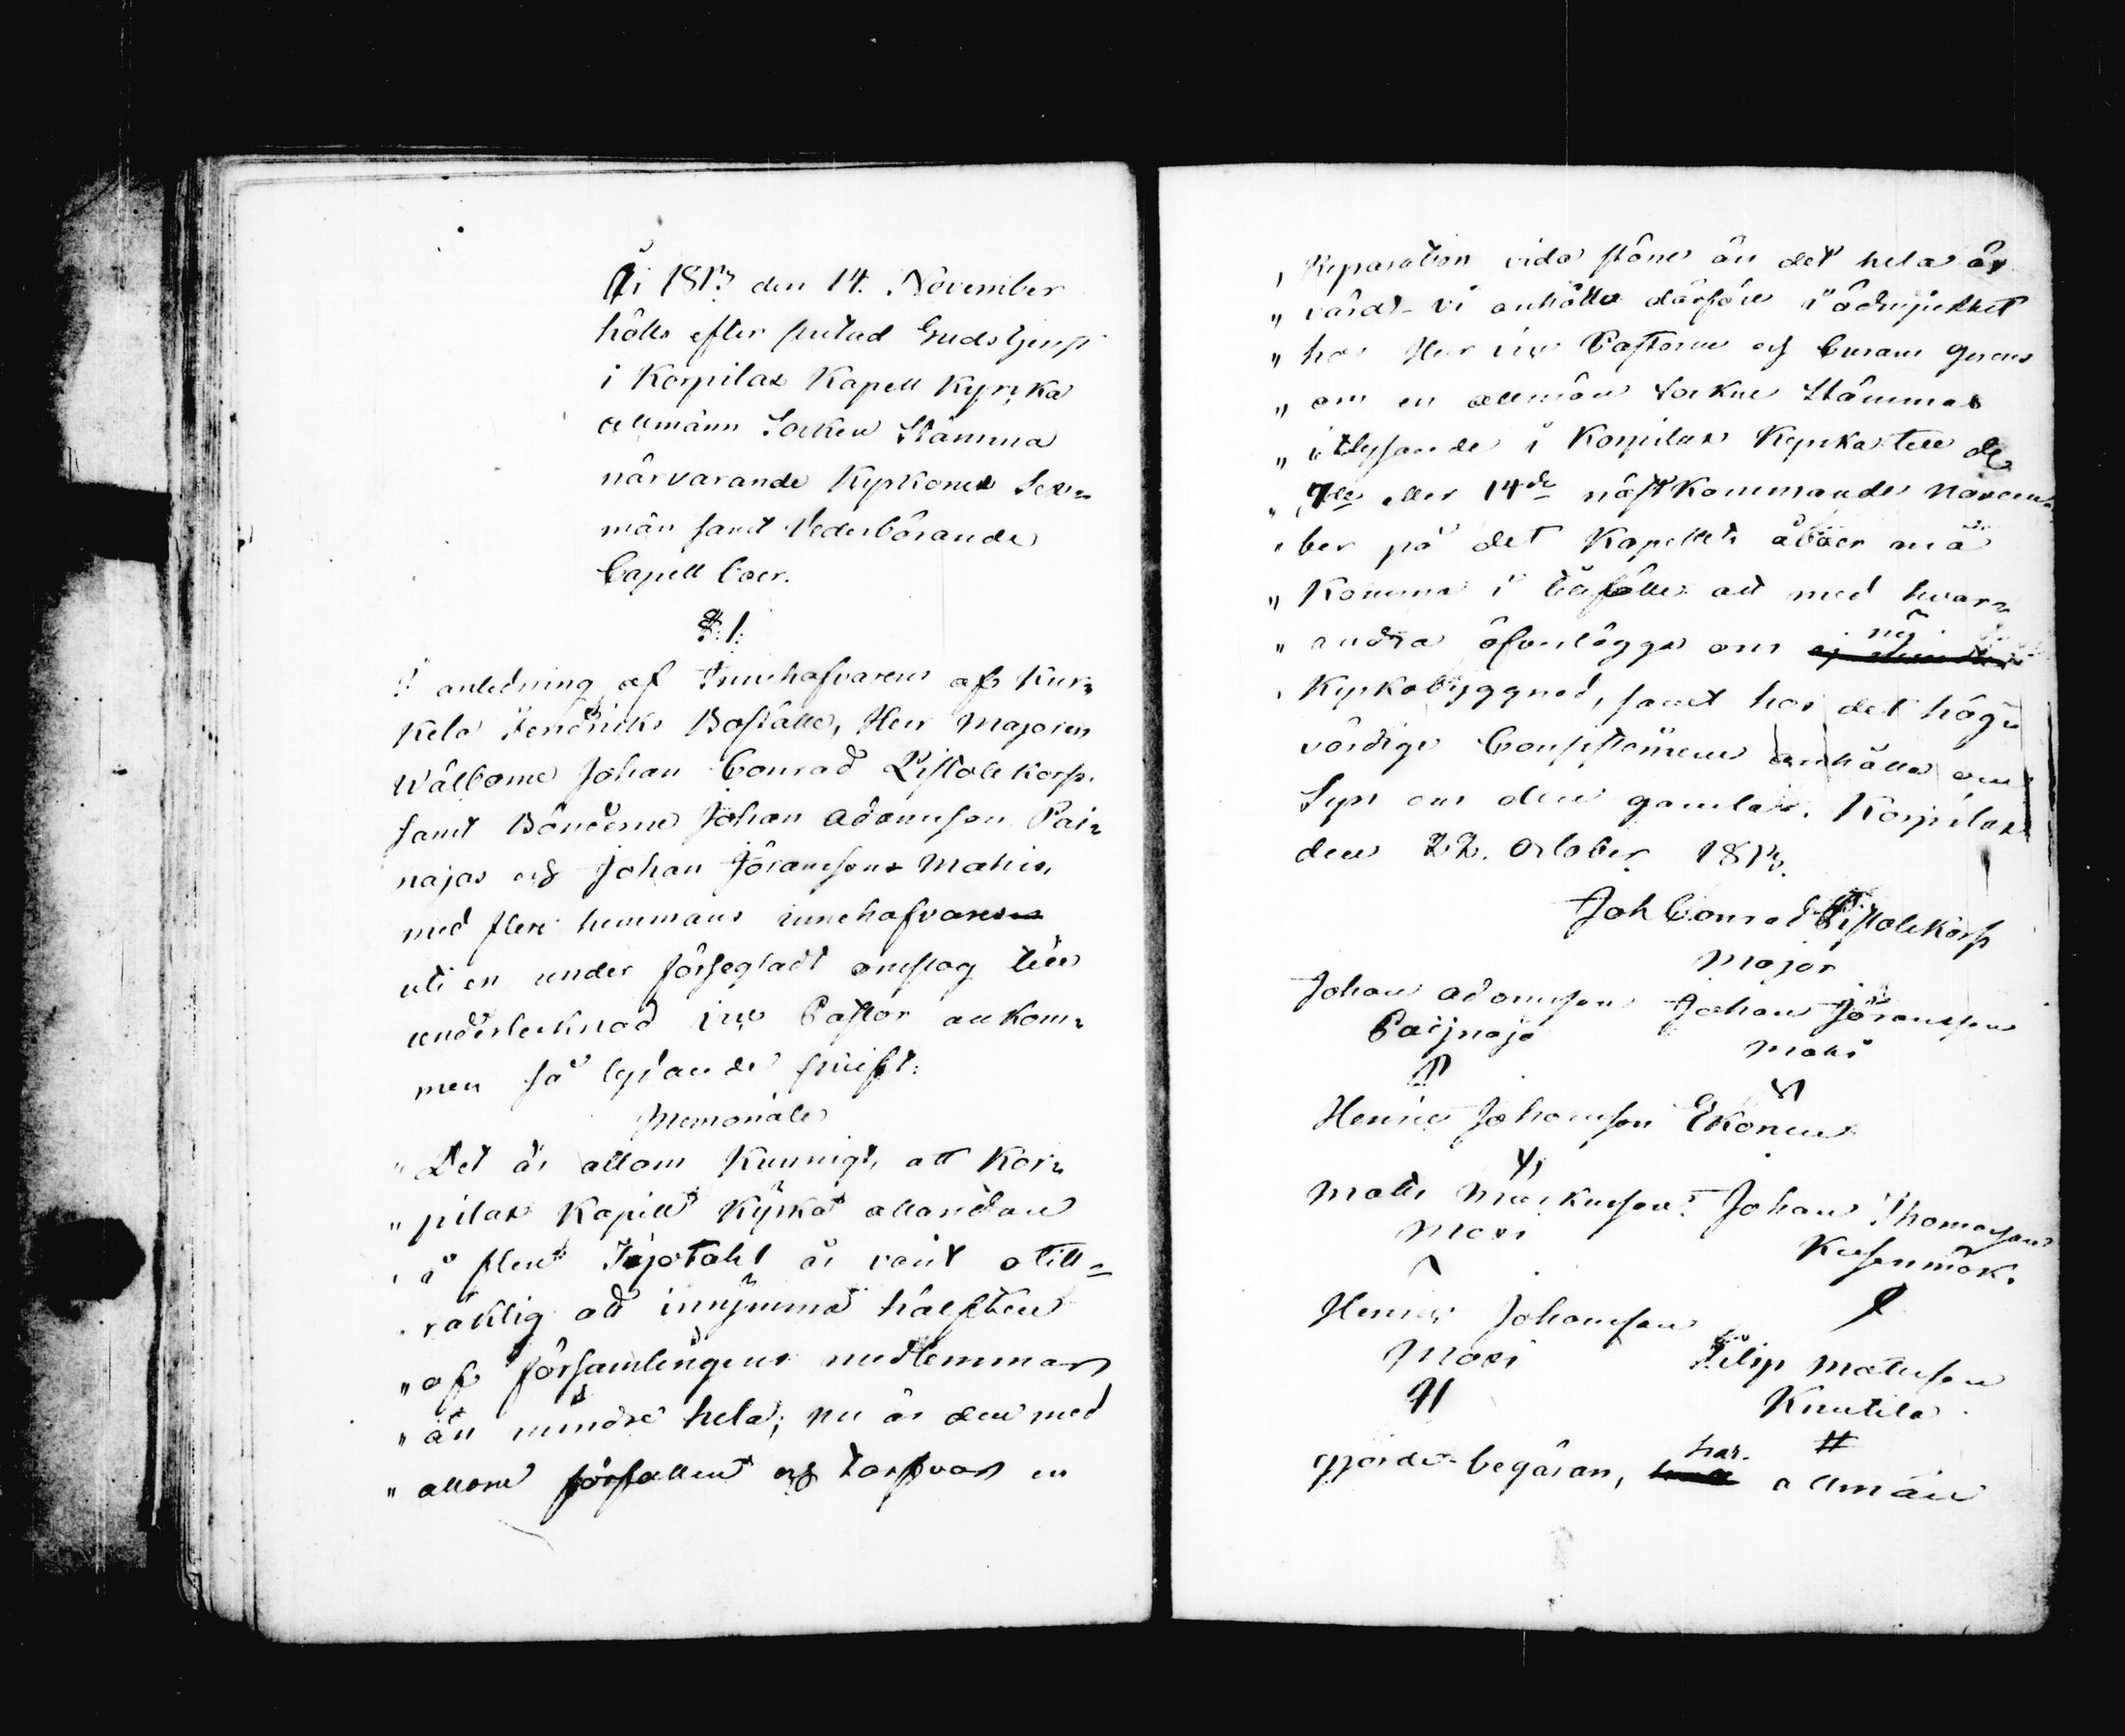 Åi 1813 den 14. November
hölls efter slutad Gudstjenst
i Korpilax Kapell Kyrka
allmänn Socken Stämma
närvarande Kyrkones Sex=
män samt Vederbörande
Capell boer.
§. 1.
I anledning af Innehafvarens af Kur=
kela Fendriks Boställe, Herr Majoren
Wälborne Johan Conrad Pistolekors,
samt Bönderne Johan Adamsson Pai=
najas och Johan Jöransson Mahis,
med flere hemmans innehafvares
uti en under försegladt omslag till
undertecknad Pastor ankom=
men så lydande skrift:
Memoriale
"Det är allom kunnigt, att Kor=
"pilax Kapell Kyrka allaredan
"i flere Tijotahl år varit otill=
"räklig att inrymma hälften
"af församlingens medlemmar
"än mindre hela; nu är den med
"allone förfallen och tarfvar en
"Reparation vida större än det hela är
"värdt - vi anhålla därföre i ödmjukhet
"hos Herr Pastorn och Curam gerens
"om en allmän Sockne Stämmas
"utlysande i Korpilax Kyrka till de
"7de eller 14de nästkommande Novem=
"ber på det Kapellets åboer må
"Komma i tillfälle att med hvar=
"andra öfverlägga om ny
"Kyrkobyggnad, samt hos det hög=
vördige Consistorium anhålla om
Syn om den gamla. Korpilax
den 22. October 1813.
Joh Conrad Pistolekors
Major
Johan Adamsson Johan Jöransson
Paijnaja Mahi
Henric Johansson Ekonen
Matts Markusson Johan Thomasson
Moxi Kusenmäk.
Henric Johansson
Moxi Filip Matsson
Knutila
gjorde begäran, har allmän